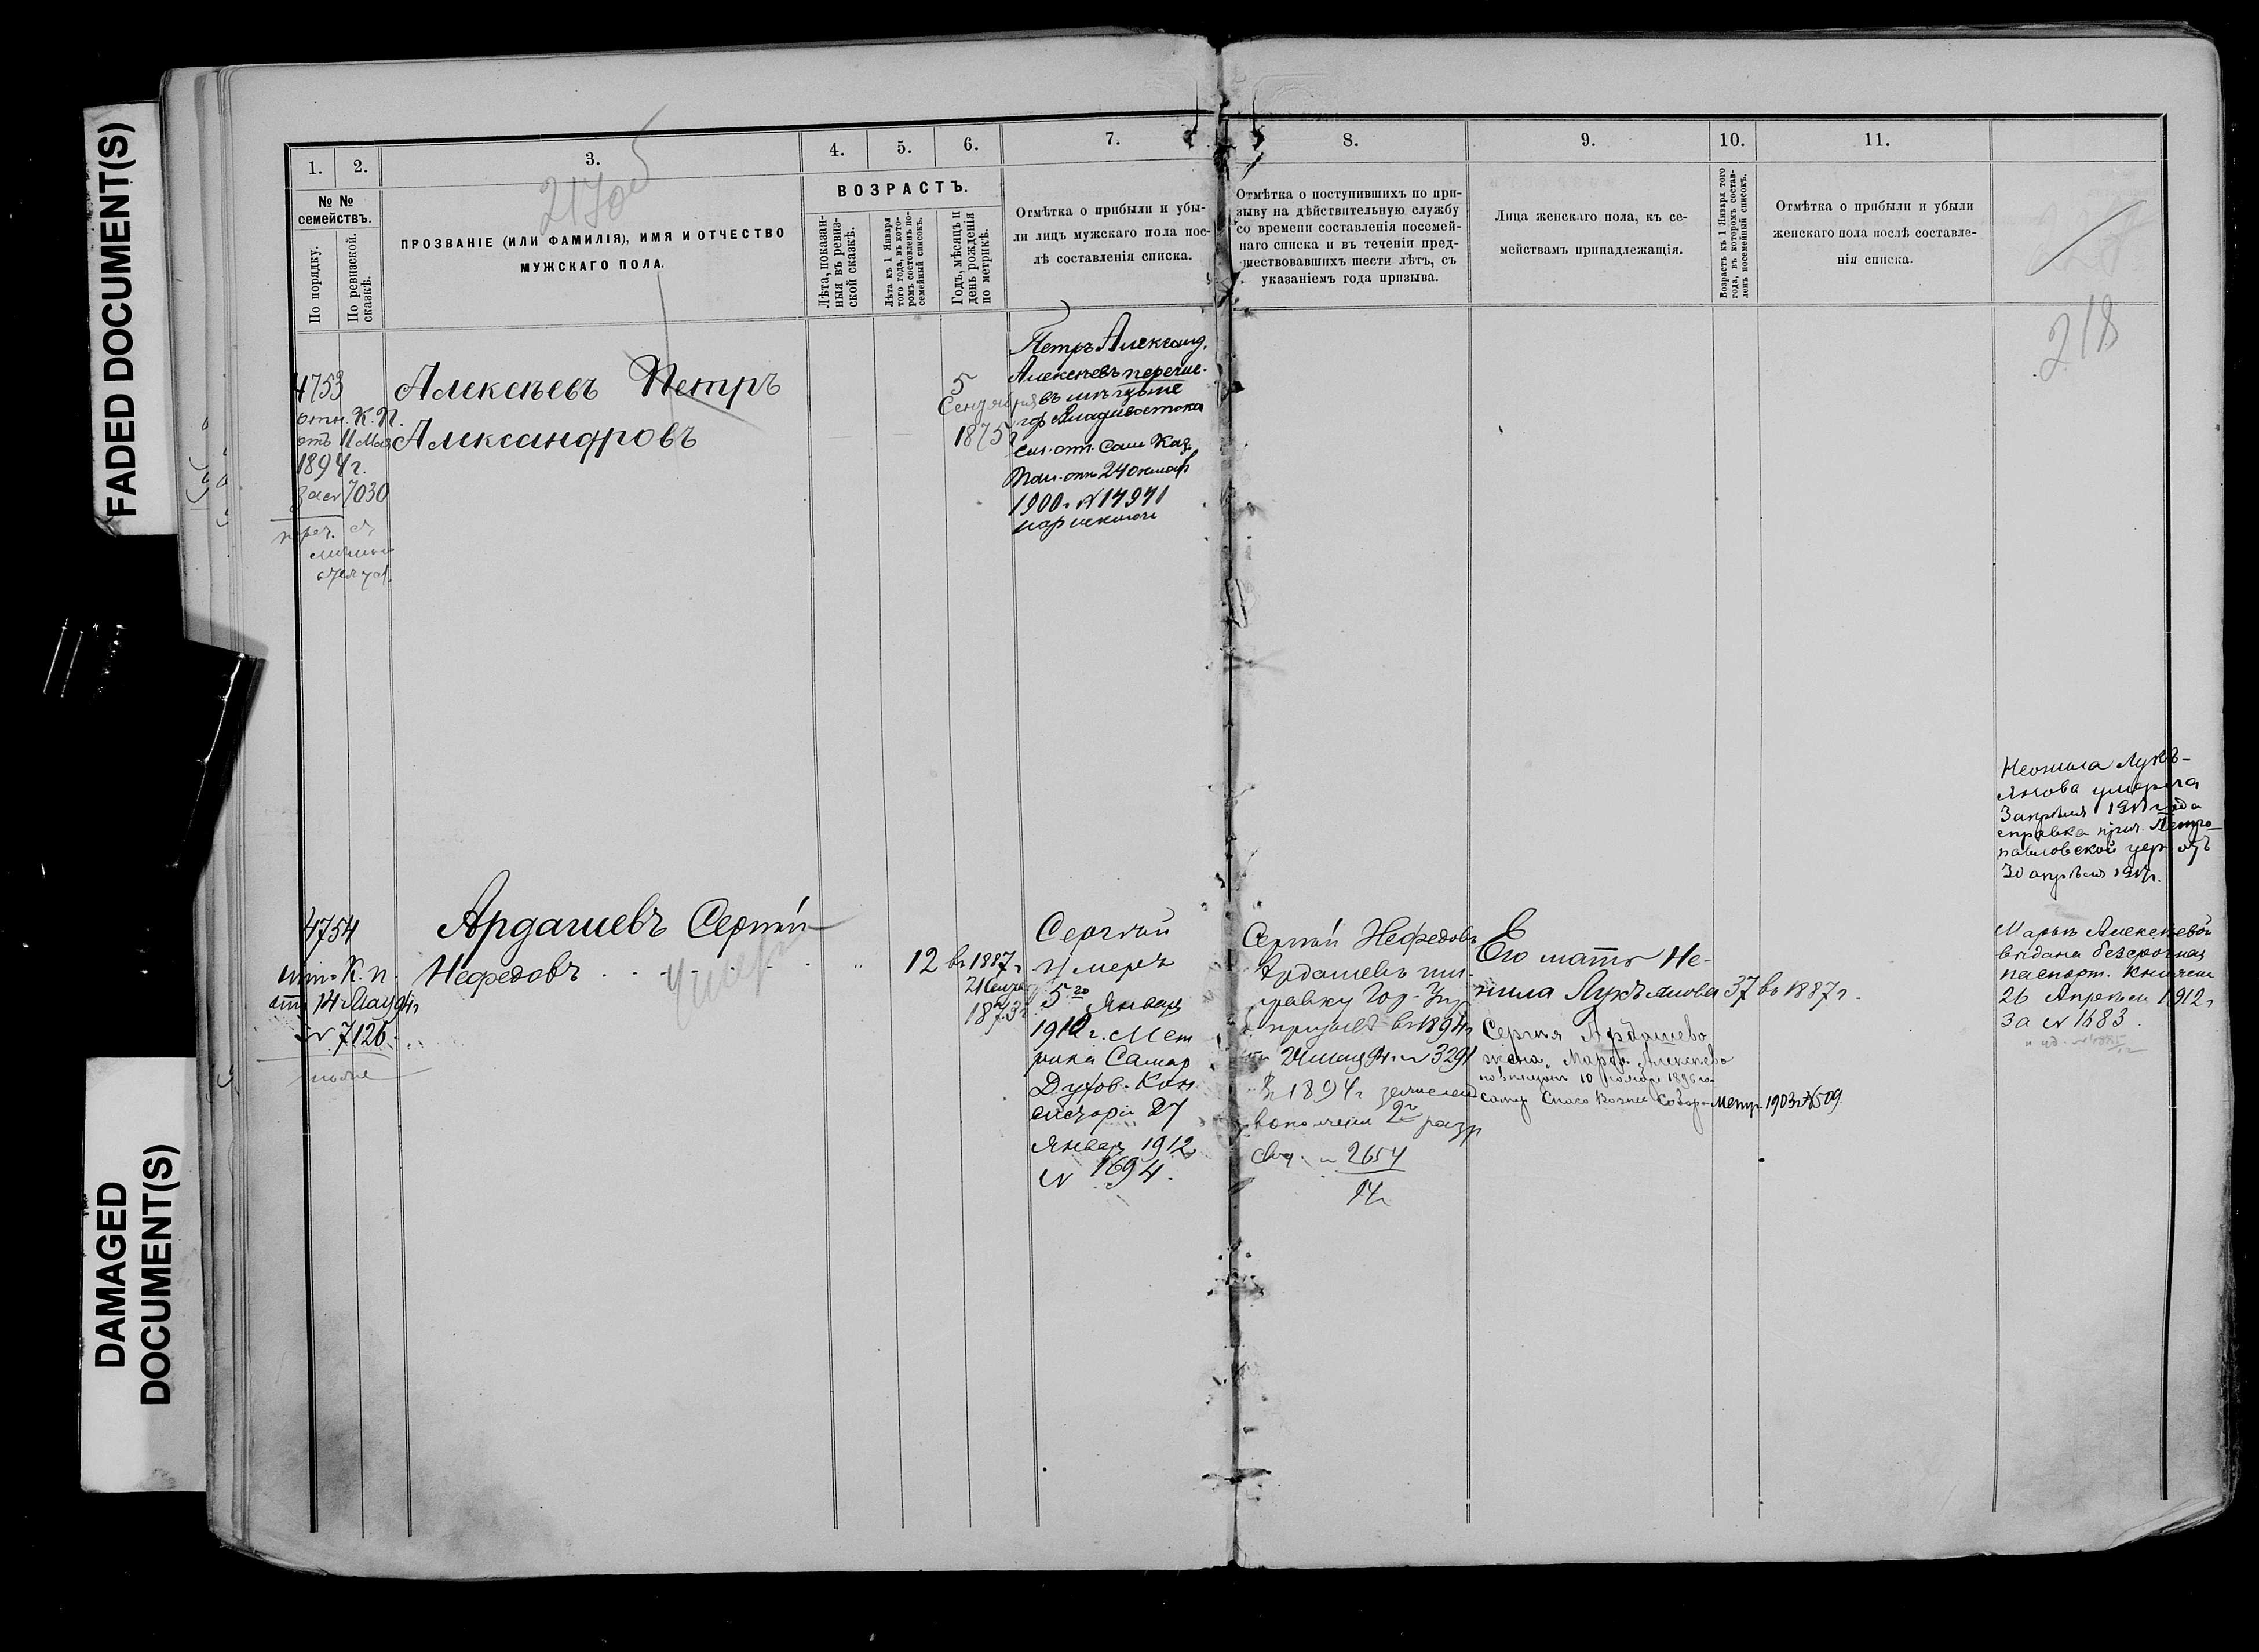 FADED DOCUMENT(S)
DAMAGED
DOCUMENT(S)
1.
2.
3.
4.
5.
6.
7.
8.
9.
10.
11.
№ №
семействъ.
По порядку.
По ревизской.
сказкѣ.
ПРОЗВАНІЕ (ИЛИ ФАМИЛІЯ), ИМЯ И ОТЧЕСТВО
МУЖСКАГО ПОЛА.
ВОЗРАСТЪ.
Лѣта, показан-
ныя въ ревиз-
ской сказкѣ.
Лѣта къ 1 Января
того года, въ кото-
ромъ составленъ по-
семейный списокъ.
Годъ, мѣсяцъ и
день рожденія
по метрикѣ.
Отмѣтка о прибыли и убы-
ли лицъ мужскаго пола пос-
лѣ составленія списка.
Отмѣтка о поступившихъ по при-
зыву на дѣйствительную службу
со времени составленія посемей-
наго списка и въ теченіи пред-
шествовавшихъ шести лѣтъ, съ
указаніемъ года призыва.
Лица женскаго пола, къ се-
мействамъ принадлежащія.
Возрастъ къ 1 Января того
года, въ которомъ состав-
ленъ посемейный списокъ.
Отмѣтка о прибыли и убыли
женскаго пола послѣ составле-
нія списка.
218
4753
отн. К. П.
отъ 11 Мая
1894 г.
за № 7030
Алексѣевъ Петръ
Александровъ
5
Сентября
1875 г
Петръ Александ.
Алексѣевъ перечис.
въ мѣщане
гор Владивостока
отн. Сам Каз.
Пал. отъ 24 октяб
1900 г № 17971
4754
отн. К. п.
отъ 14 Мая 94 г
№ 7126.
Ардашевъ Сергѣй
Нефедовъ
умеръ
12 въ 1887 г
21 Сентяб
1873 г
Сергѣй
Умеръ
5го Января
1912 г. Мет
рика Самар
Духов. Кон
систоріи 27
Января 1912
№ 1694.
Сергѣй Нефедовъ
Ардашевъ
Гор. Упр
призывъ въ 1894 г
24 мая 94 г № 3291
Въ 1894 г зачислен
в ополчен 2го разр
Свид. № 2654
94 г
Его мать Не-
нила Лукьянова 37 въ 1887 г.
Сергѣя Ардашева
жена Марья Алексѣева
10 ноября 1896 го
Самар Спасо Вознес Собор Метр. 1903 г № 509.
Неонила Лукь-
янова умерла
3 апрѣля 191
справка прич. Петро-
павловской цер. отъ
30 апрѣля
Марьѣ Алексѣевой
выдана безсрочная
паспорт. Книжка
26 Апрѣля 1912 г
за № 1683.